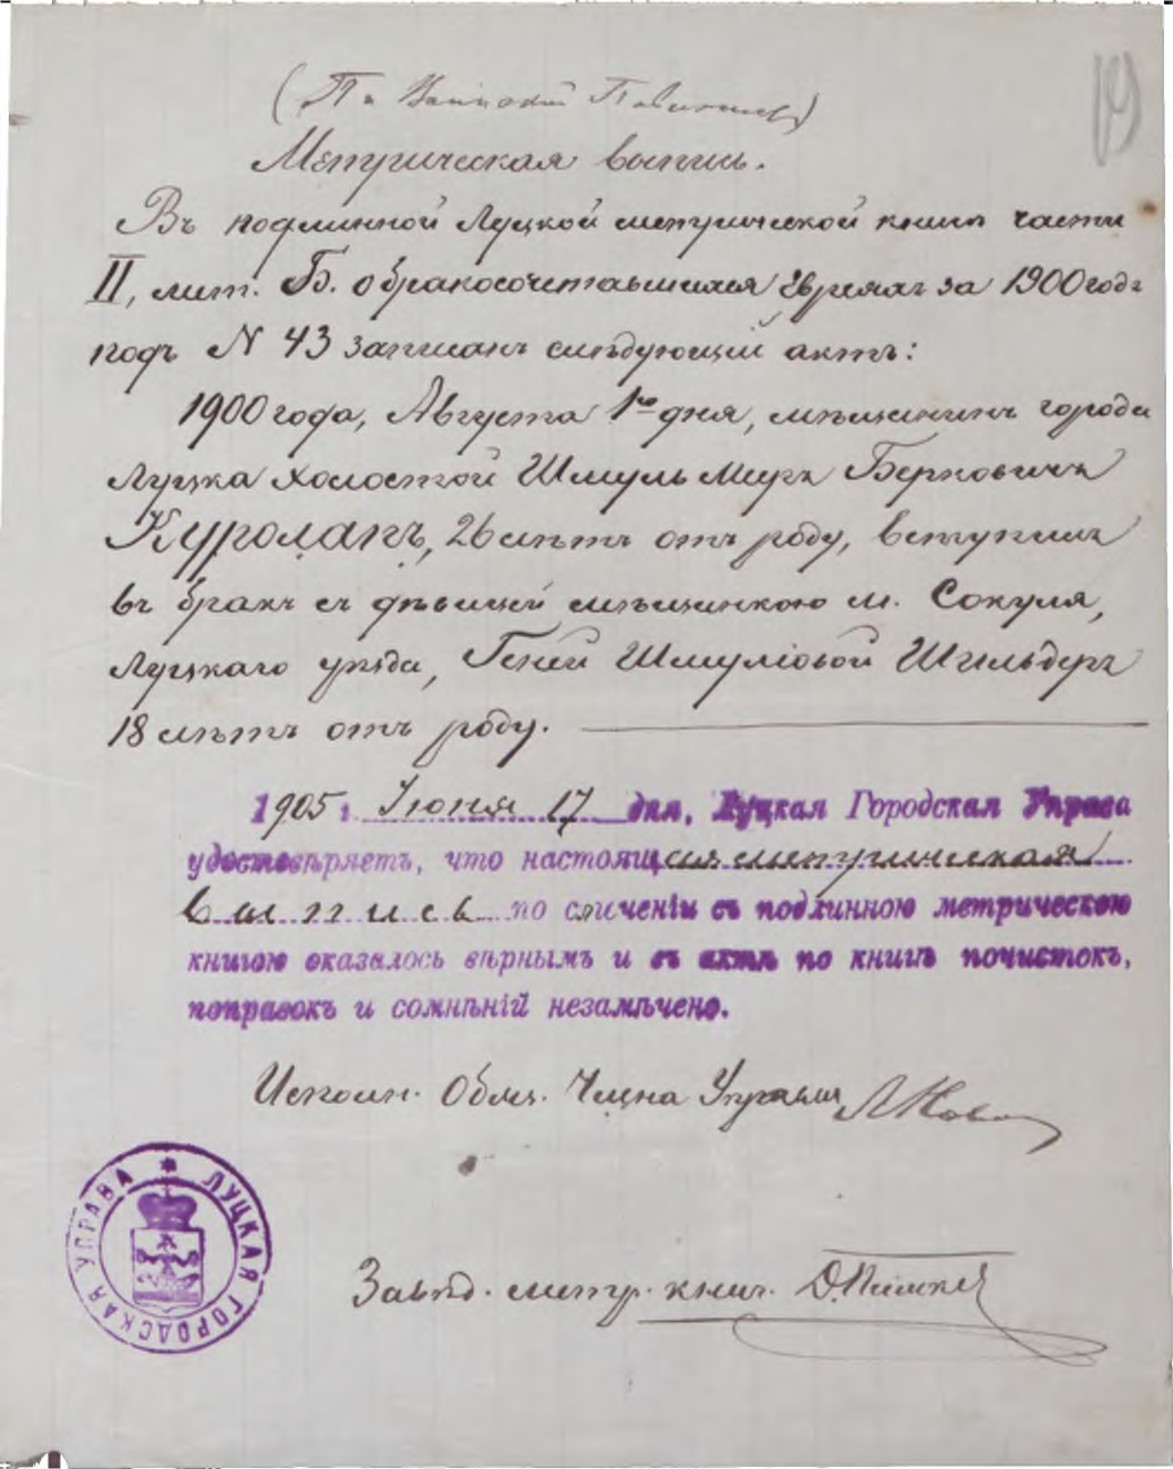 19
(По Воинской Повинности)
Метрическая выпись.
Въ подлинной Луцкой метрической книгѣ части
II, лит. Б. о бракосочетавшихся Евреяхъ за 1900 годъ
подъ N 43 записанъ слѣдующій актъ:
1900 года, Августа 1го дня, мѣщанинъ города
Луцка холостой Шмуль Меер Берковичъ
Куроланъ, 26 лѣтъ отъ роду, вступилъ
въ бракъ съ дѣвицей мѣщанкою м. Сокуля,
Луцкаго уѣзда, Геней Шмуліовой Шильдеръ
18 лѣтъ отъ роду.
1905 г. Іюня 17 дня, Луцкая Городская Управа
удостовѣряетъ, что настоящая метрическая
выпись по сличеніи съ подлинною метрическою
книгою оказалось вѣрнымъ и въ актѣ по книгѣ почистокъ,
поправокъ и сомнѣній незамѣчено.
Исполн. Обяз. Члена Управы
ЛУЦКАЯ ГОРОДСКАЯ УПРАВА
Завѣд. метр. книг.